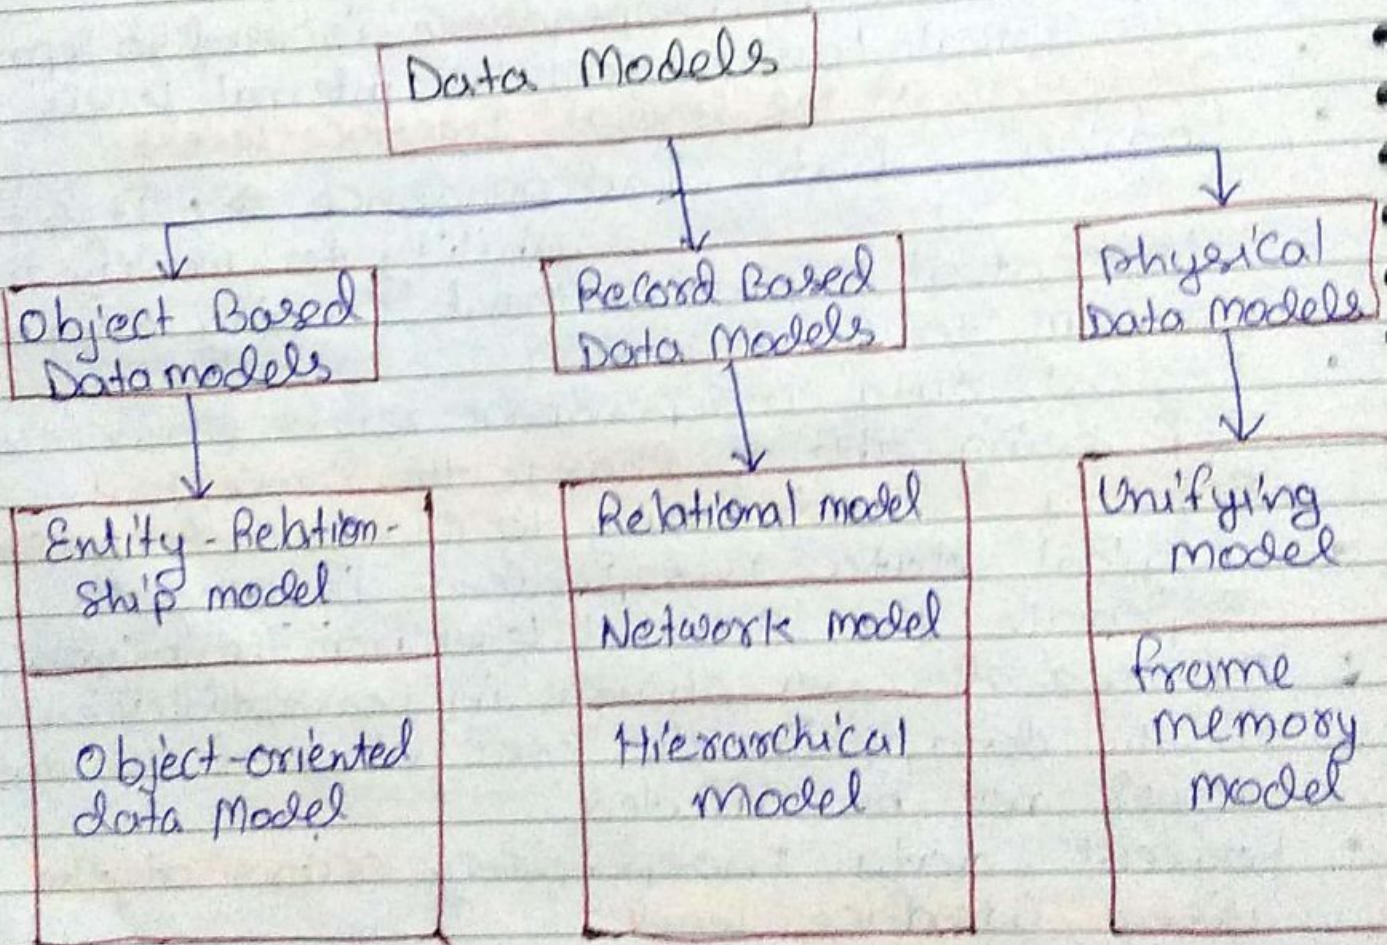 Data Models
Object Based
Data models
Record Based
Data Models
Physical
Data Models
Entity-Relation-
Ship model
Object-oriented
data Model
Relational model
Network model
Hierarchical
model
Unifying
model
frame
memory
model